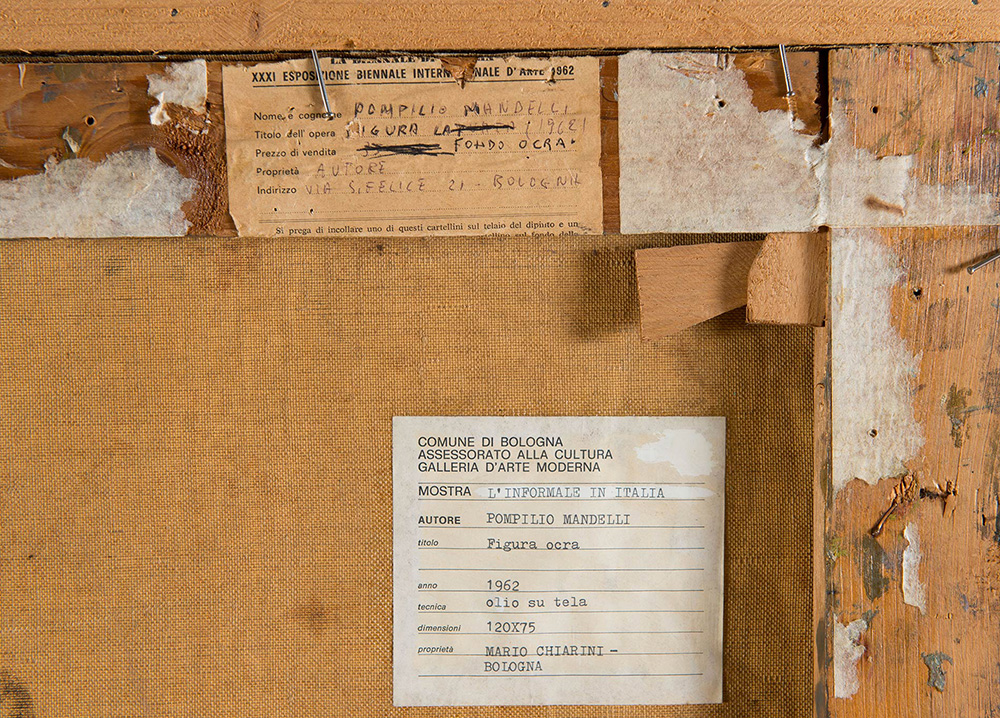 LA BIENNALE DI
XXXI ESPOSIZIONE BIENNALE INTERNAZIONALE D'ARTE 1962
Nome e cognome POMPILIO MANDELLI
Titolo dell'opera FIGURA (1962)
Prezzo di vendita FONDO OCRA
Proprietà AUTORE
Indirizzo VIA S. FELICE 21 - BOLOGNA
Si prega di incollare uno di questi cartellini sul telaio del dipinto e un
sul fondo
COMUNE DI BOLOGNA
ASSESSORATO ALLA CULTURA
GALLERIA D'ARTE MODERNA
MOSTRA L'INFORMALE IN ITALIA
AUTORE POMPILIO MANDELLI
titolo Figura ocra
anno 1962
tecnica olio su tela
dimensioni 120X75
proprietà MARIO CHIARINI -
BOLOGNA